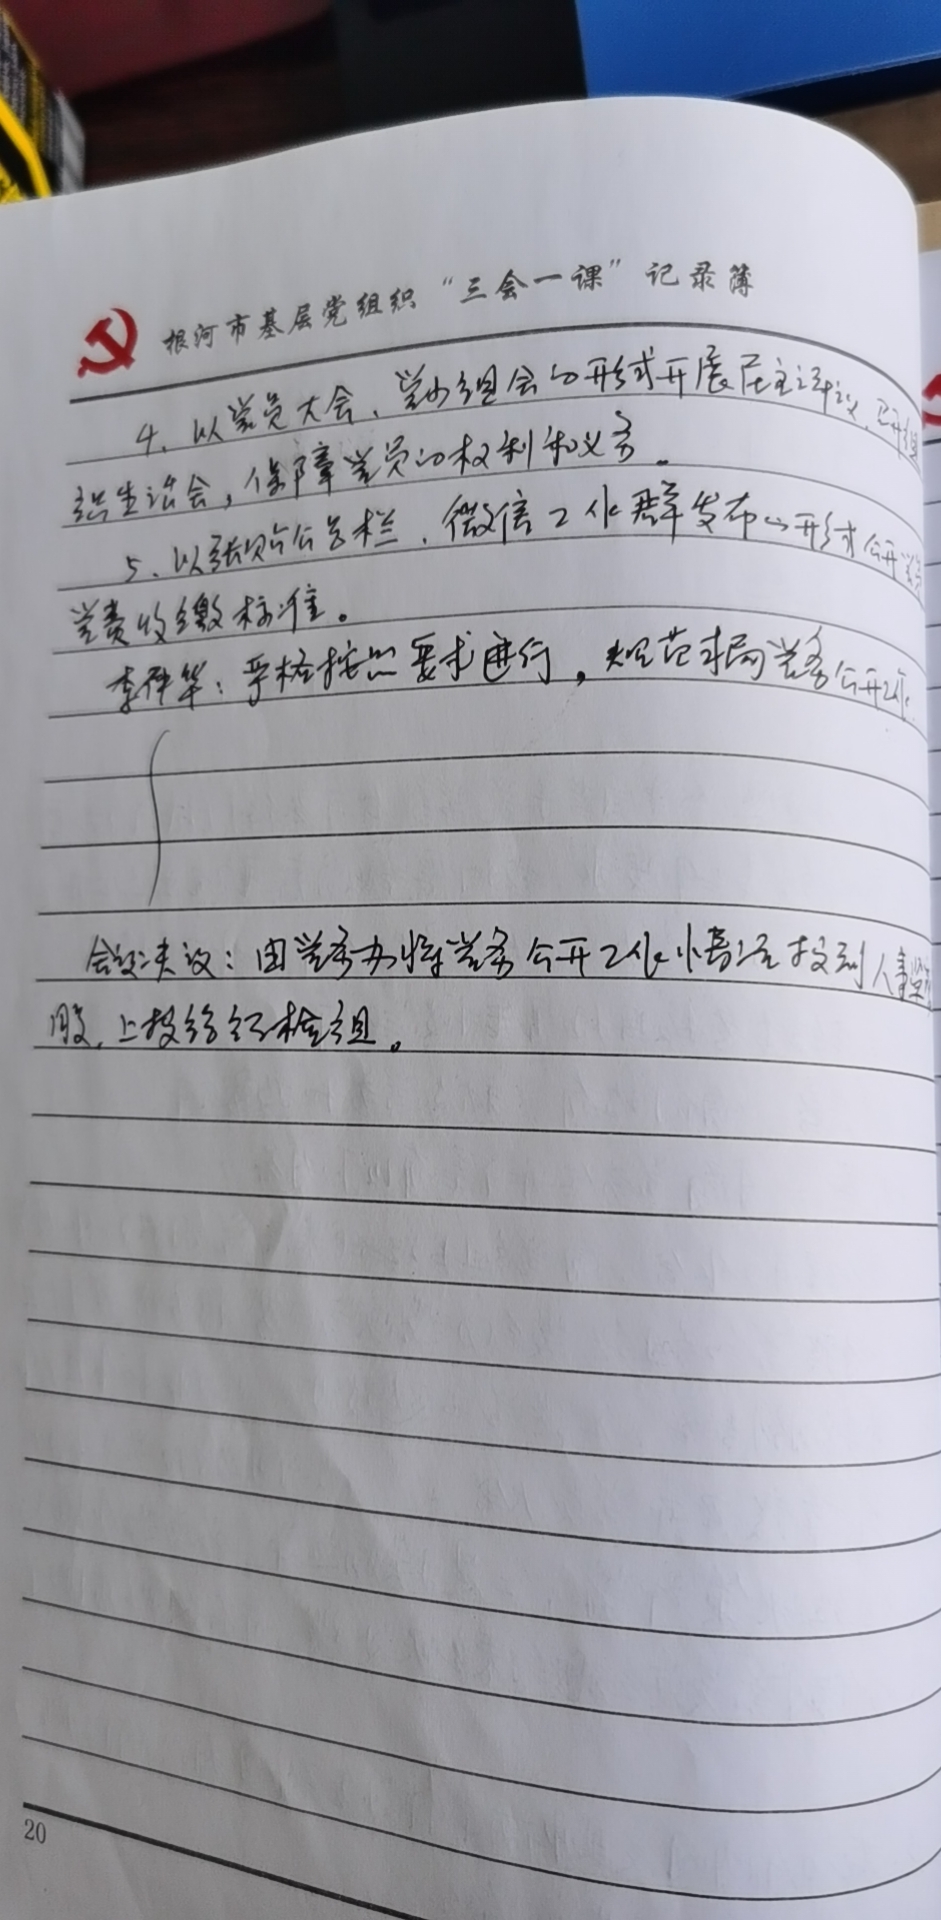 根河市基层党组织“三会一课”记录簿
4、以党员大会、党小组会的形式开展民主评议、召开组
织生活会，保障党员的权利和义务。
5、以张贴公告栏、微信工作群发布的形式公开党员
党费收缴标准。
严格按照要求进行，规范我局党务公开工作。
会议决议：由党务办将党务公开工作情况报到人事
股，上报给纪检组。
20